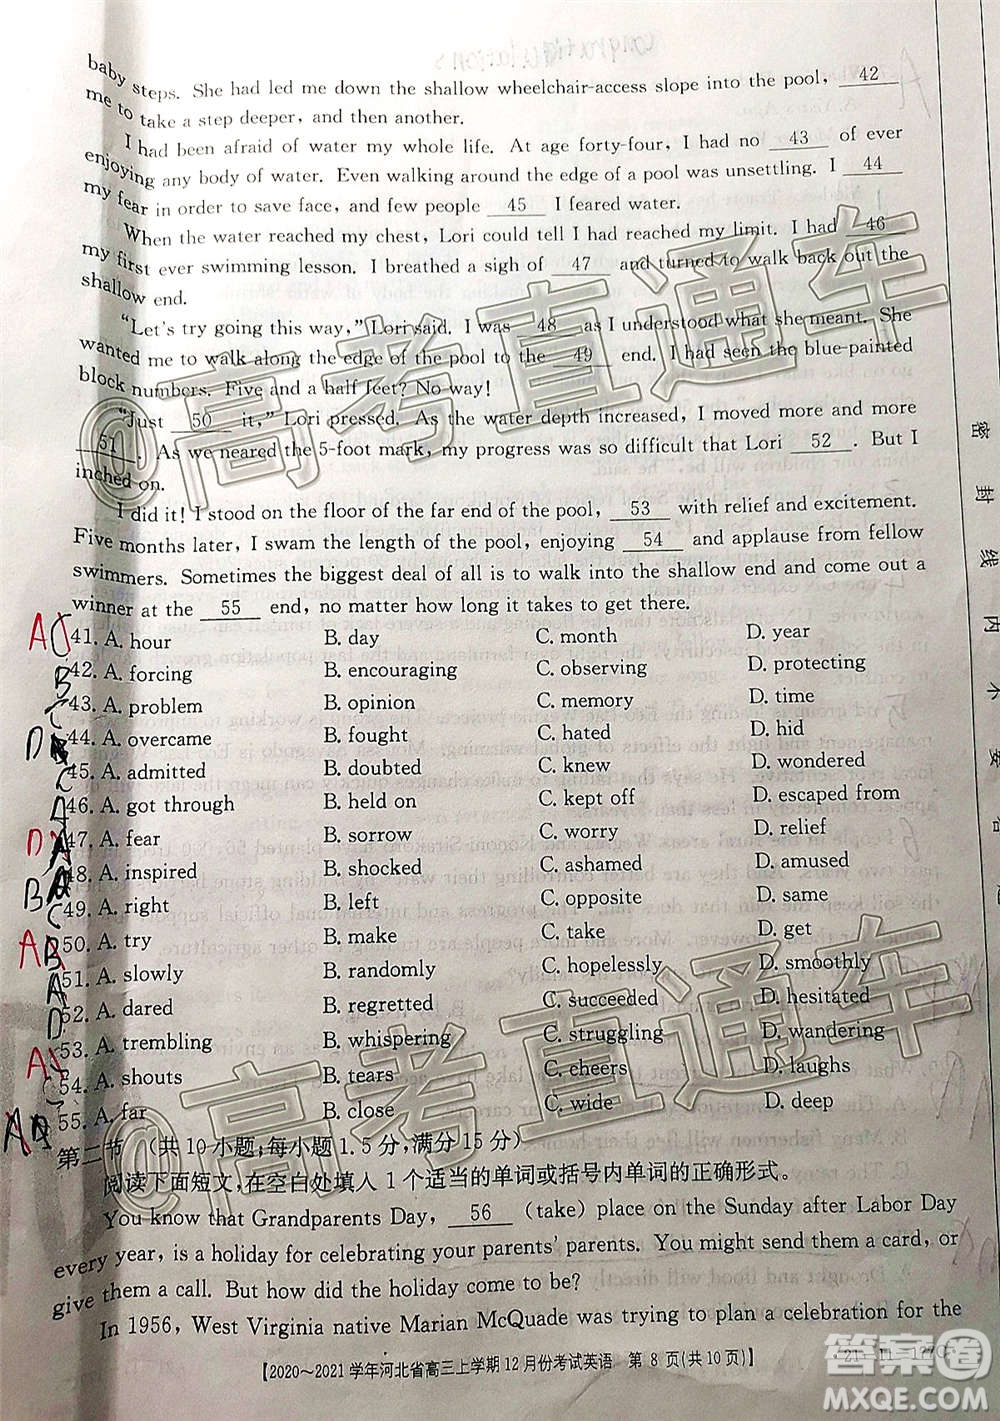 baby steps. She had led me down the shallow wheelchair-access slope into the pool, 42
me to take a step deeper, and then another.
I had been afraid of water my whole life. At age forty-four, I had no 43 of ever
enjoying any body of water. Even walking around the edge of a pool was unsettling. I 44
my fear in order to save face, and few people 45 I feared water.
When the water reached my chest, Lori could tell I had reached my limit. I had 46
my first ever swimming lesson. I breathed a sigh of 47 and turned to walk back out the
shallow end.
"Let's try going this way," Lori said. I was 48 as I understood what she meant. She
wanted me to walk along the edge of the pool to the 49 end. I had seen the blue-painted
block numbers. Five and a half feet? No way!
"Just 50 it," Lori pressed. As the water depth increased, I moved more and more
51 . As we neared the 5-foot mark, my progress was so difficult that Lori 52 . But I
inched on.
I did it! I stood on the floor of the far end of the pool, 53 with relief and excitement.
Five months later, I swam the length of the pool, enjoying 54 and applause from fellow
swimmers. Sometimes the biggest deal of all is to walk into the shallow end and come out a
winner at the 55 end, no matter how long it takes to get there.
41. A. hour B. day C. month D. year
42. A. forcing B. encouraging C. observing D. protecting
43. A. problem B. opinion C. memory D. time
44. A. overcame B. fought C. hated D. hid
45. A. admitted B. doubted C. knew D. wondered
46. A. got through B. held on C. kept off D. escaped from
47. A. fear B. sorrow C. worry D. relief
48. A. inspired B. shocked C. ashamed D. amused
49. A. right B. left C. opposite D. same
50. A. try B. make C. take D. get
51. A. slowly B. randomly C. hopelessly D. smoothly
52. A. dared B. regretted C. succeeded D. hesitated
53. A. trembling B. whispering C. struggling D. wandering
54. A. shouts B. tears C. cheers D. laughs
55. A. far B. close C. wide D. deep
第二节 (共10小题;每小题1.5分,满分15分)
阅读下面短文,在空白处填入1个适当的单词或括号内单词的正确形式。
You know that Grandparents Day, 56 (take) place on the Sunday after Labor Day
every year, is a holiday for celebrating your parents' parents. You might send them a card, or
give them a call. But how did the holiday come to be?
In 1956, West Virginia native Marian McQuade was trying to plan a celebration for the
【2020～2021学年河北省高三上学期12月份考试英语 第8页(共10页)】
密
封
线
内
不
要
@高考直通车
@高考直通车
答案圈
MXQE.COM